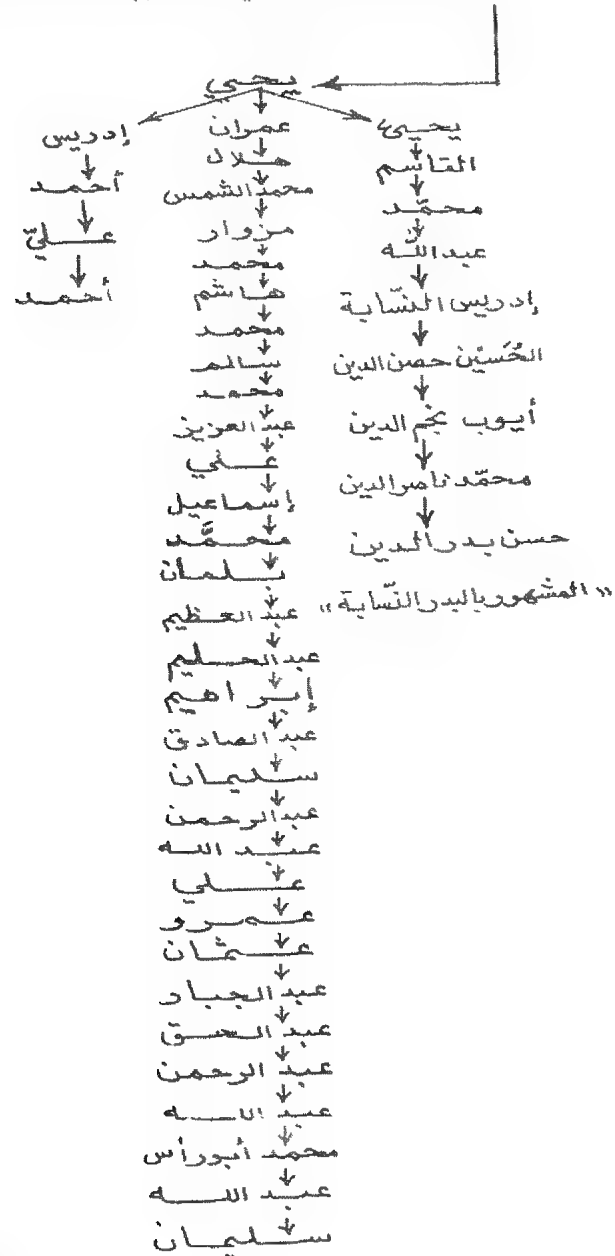 يحيى
يحيى
القاسم
محمّد
عبد اللّه
إدريس النسّابة
الحُسَيْن حصن الدين
أيوب نجم الدين
محمّد ناصر الدين
حسن بدر الدين
«المشهور بالبدر النسّابة»
عمران
هلال
محمد الشمس
مزوار
محمد
هاشم
محمد
سالم
محمد
عبد العزيز
علي
إسماعيل
محمَّد
عبد العظيم
عبد الحليم
إبراهيم
عبد الصادق
سليمان
عبد الرحمن
عبد الله
علي
عمرو
عثمان
عبد الجبار
عبد الحق
عبد الرحمن
عبد الله
محمد أبوراس
عبد الله
سليمان
إدريس
أحمد
عليّ
أحمد